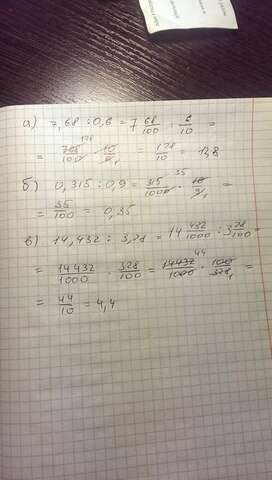 а) 7,68 : 0,6 = 7 68/100 : 6/10 =
= 768/100 · 10/6 = 128/10 = 12,8
б) 0,315 : 0,9 = 315/1000 · 10/9 =
= 35/100 = 0,35
в) 14,432 : 3,28 = 14 432/1000 : 3 28/100 =
= 14432/1000 · 328/100 = 14432/1000 · 100/328 =
= 44/10 = 4,4